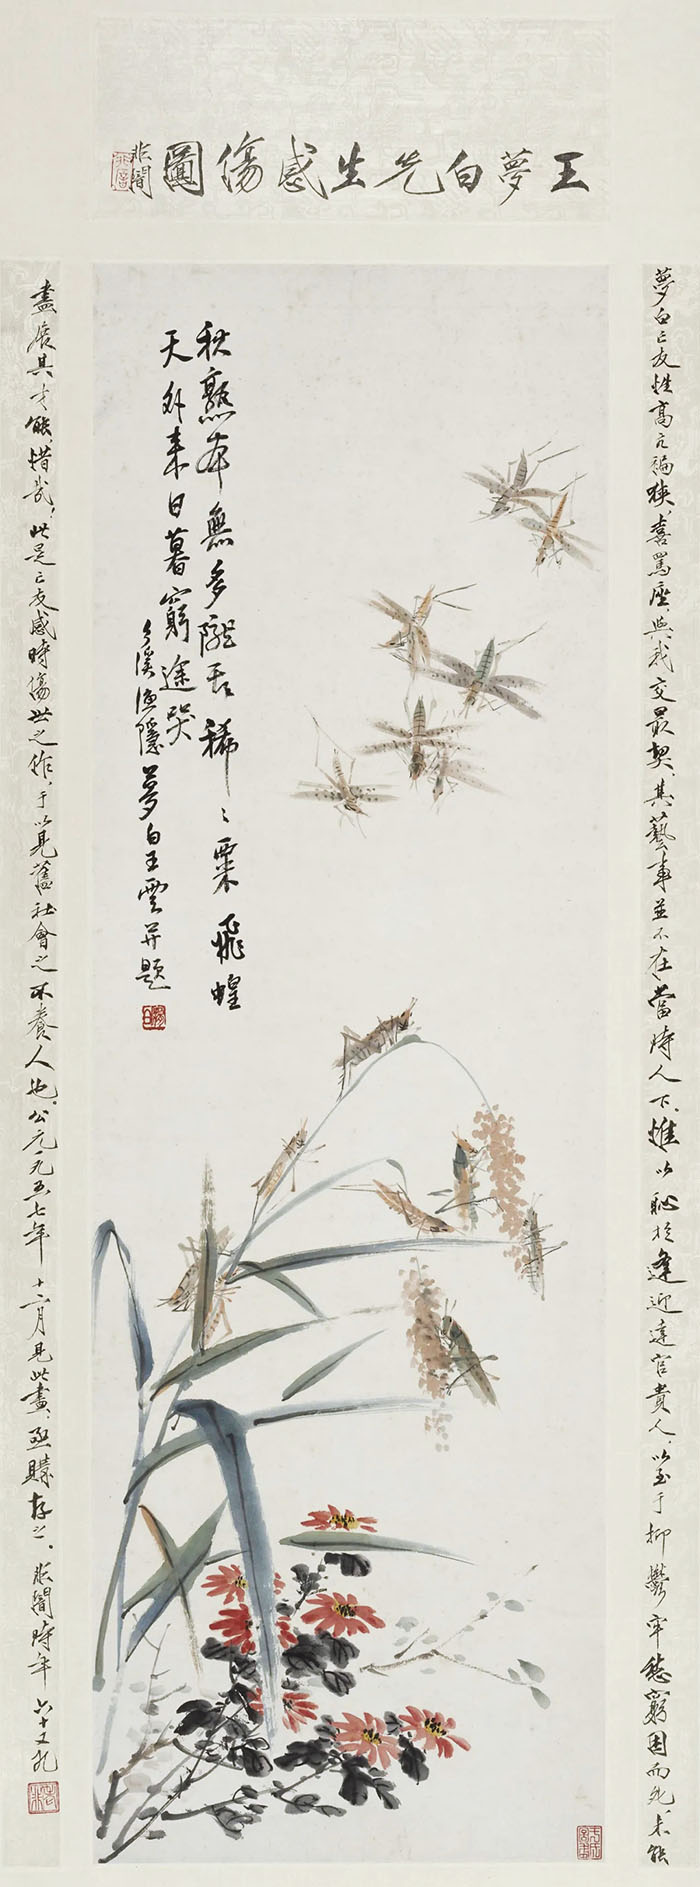 王夢白先生感傷圖
非闇
夢白亡友性高亢褊狹，喜罵座，與我交最契，其藝事並不在當時人下，惟以恥於逢迎達官貴人，以至于抑鬱牢愁窮困而死，未能
秋熟本無多隴頭稀〻粟飛蝗
天外來日暮窮途哭
溪漁隱夢白王雲并題
盡展其才能，惜哉！此是亡友感時傷世之作，于以見舊社會之不養人也。公元一九五七年十二月見此畫，亟購存之。非闇時年六十又九